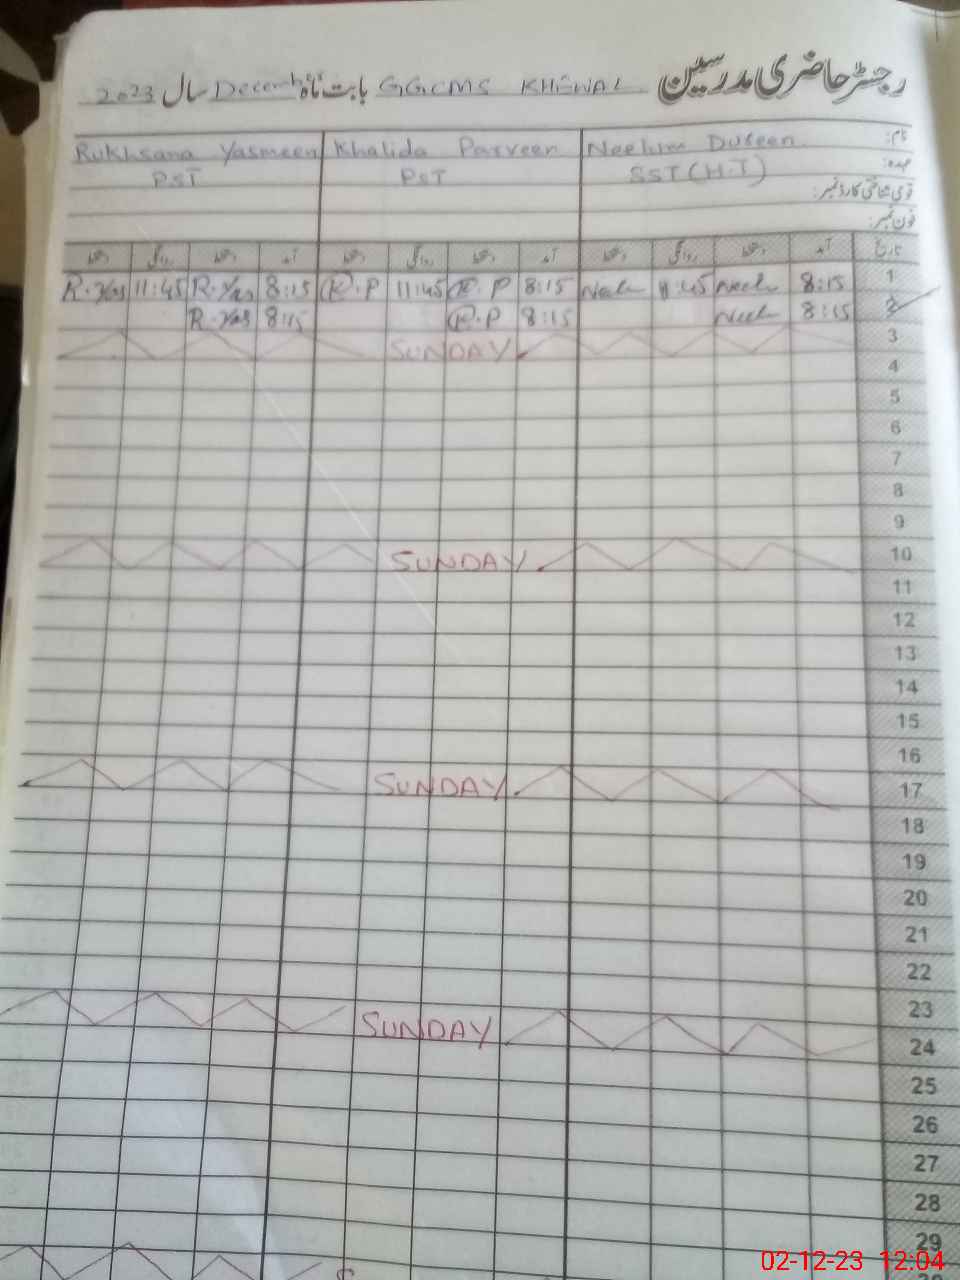 رجسٹر حاضری مدرسین GGCMS KHEWAL بابت ماہ December سال 2023
نام: Neelum Dureen Khalida Parveen Rukhsana Yasmeen
عہدہ: SST (H.T) PST PST
قومی شناختی کارڈ نمبر:
فون نمبر:
تاریخ آمد دستخط روانگی دستخط آمد دستخط روانگی دستخط آمد دستخط روانگی دستخط
1 8:15 Neel 11:45 Neel 8:15 K.P 11:45 K.P 8:15 R.Yas 11:45 R.Yas
2 8:15 Neel 8:15 K.P 8:15 R.Yas
3 SUNDAY
4
5
6
7
8
9
10 SUNDAY
11
12
13
14
15
16
17 SUNDAY
18
19
20
21
22
23
24 SUNDAY
25
26
27
28
29
02-12-23 12:04